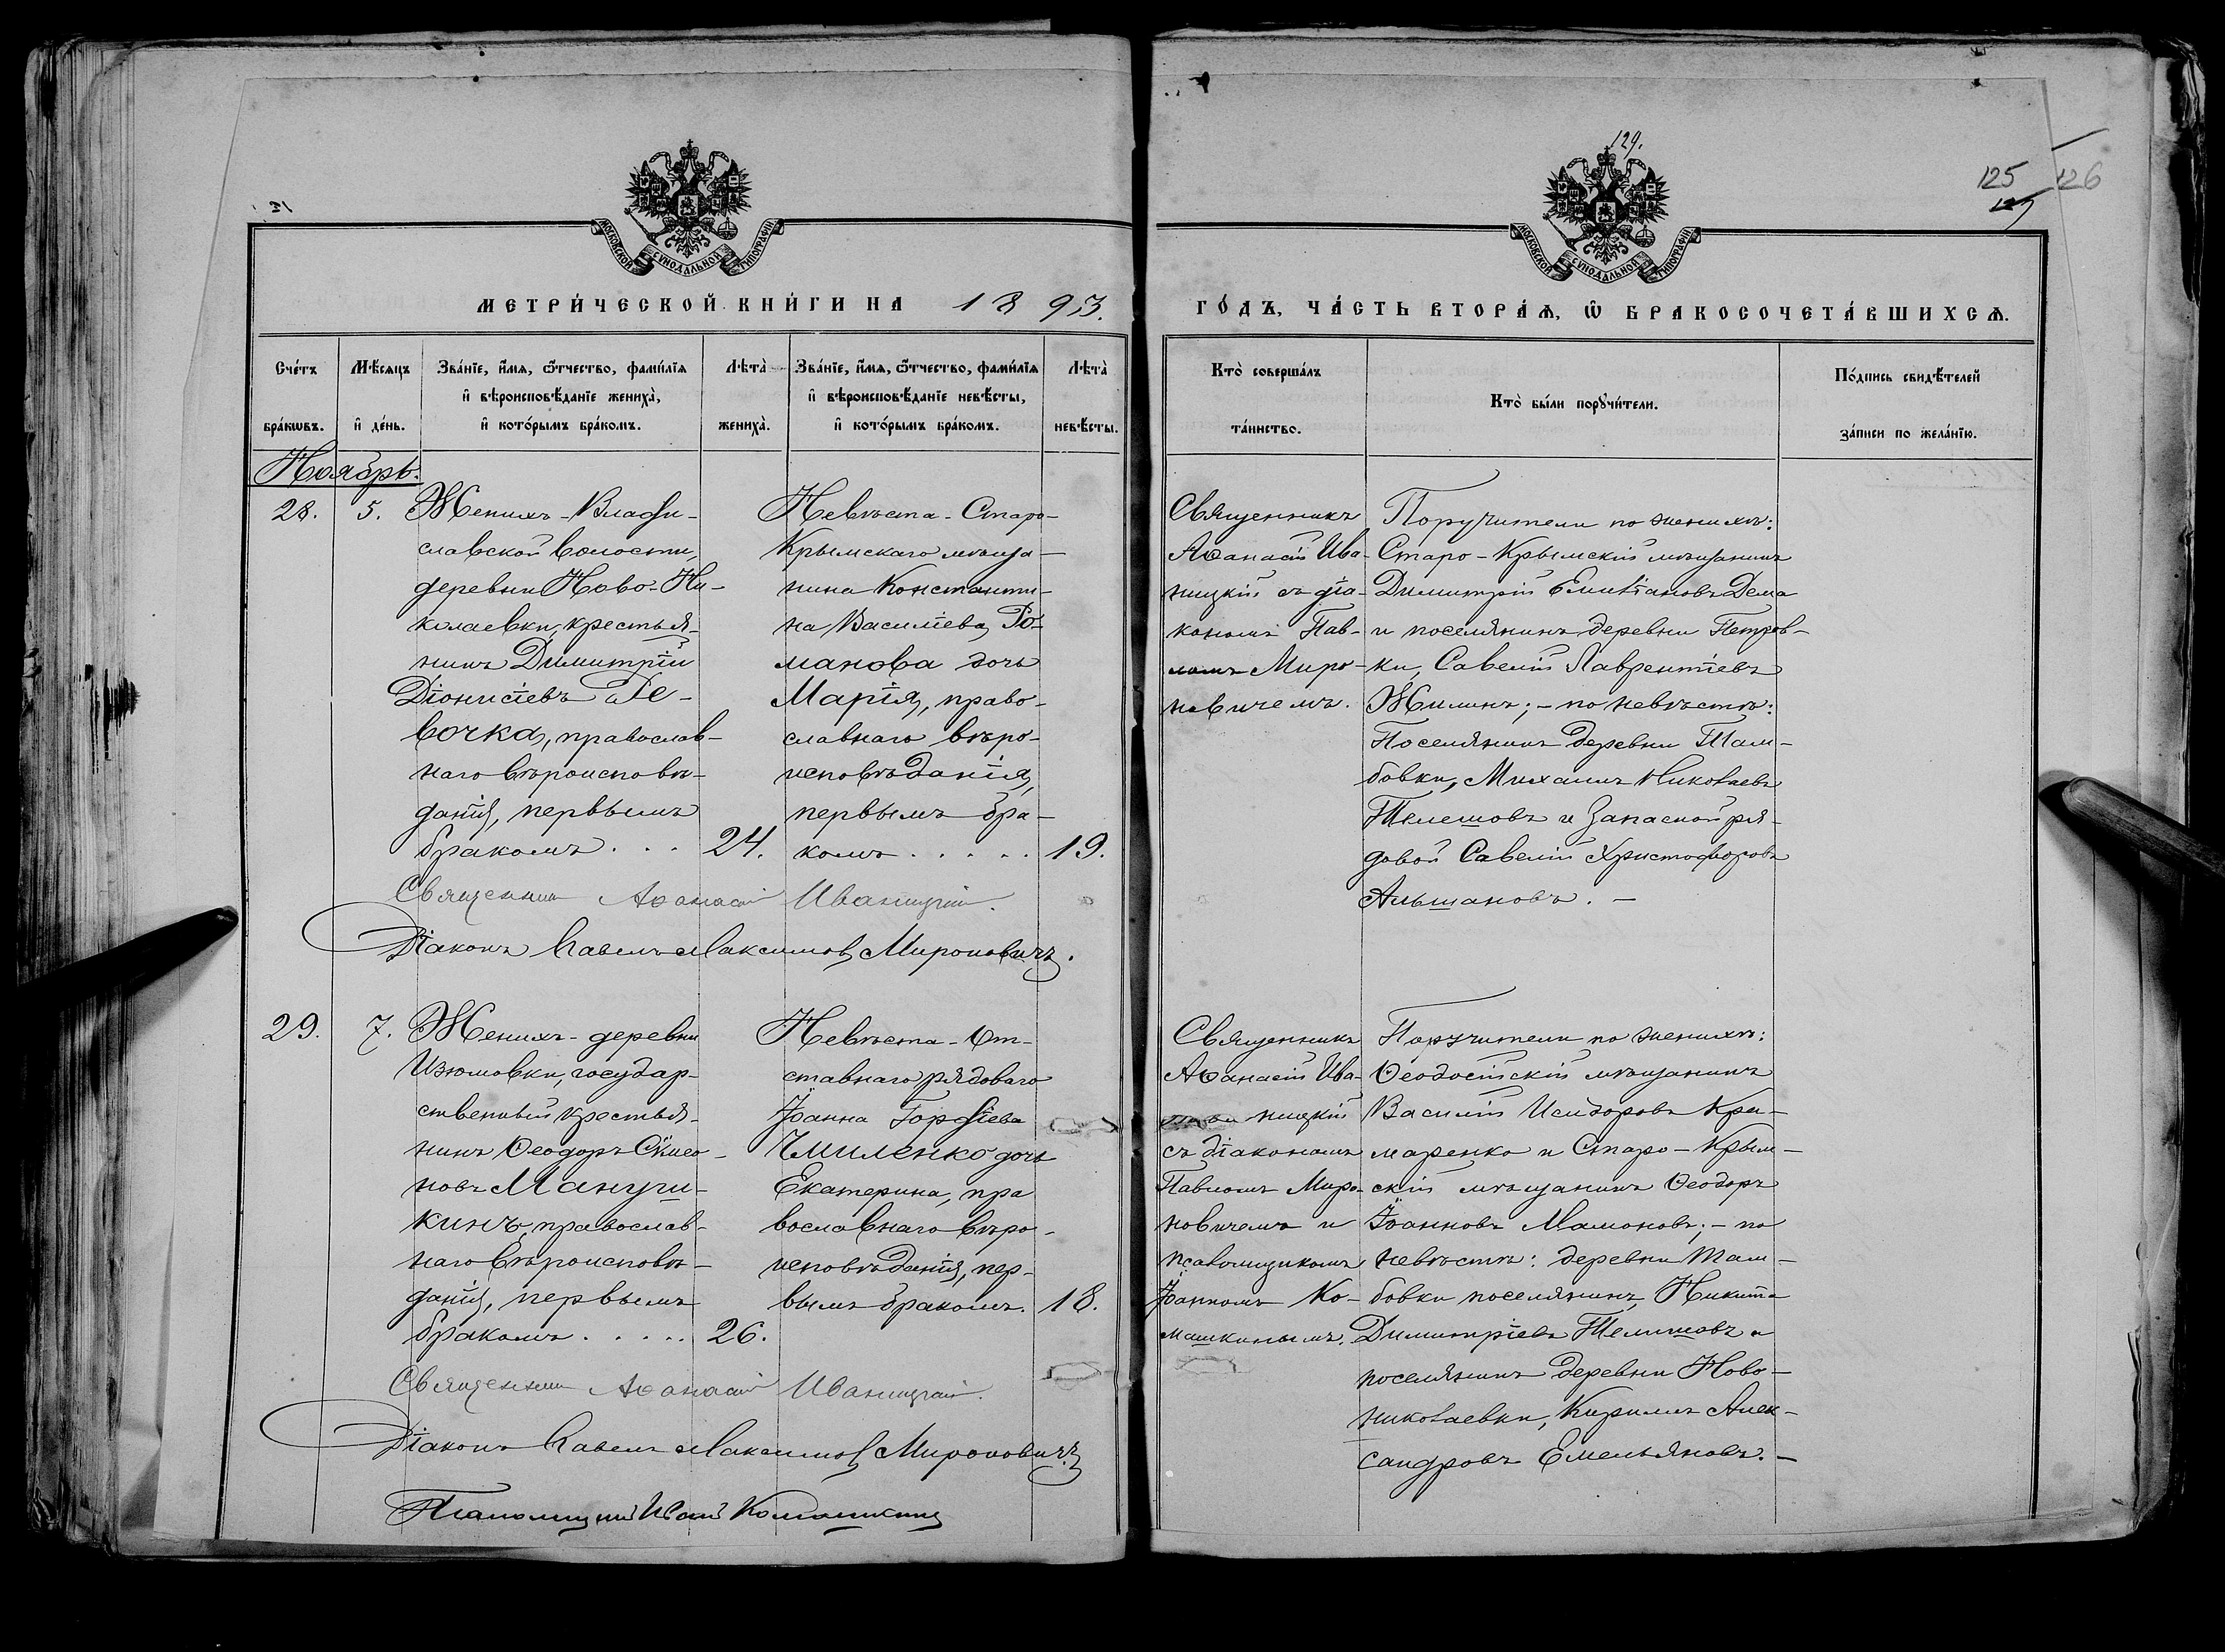 129.
125
126
127
МОСКОВСКОЙ СУНОДАЛЬНОЙ ТИПОГРАФІИ
МОСКОВСКОЙ СУНОДАЛЬНОЙ ТИПОГРАФІИ
МЕТРИ́ЧЕСКОЙ КНИ́ГИ НА 1893.
ГО́ДЪ, ЧА́СТЬ ВТОРА́Ѧ, Ѿ БРАКОСОЧЕТА́ВШИХСѦ.
Сче́тъ бра́кѡвъ.
Мѣ́сѧцъ и҆ де́нь.
Зва́нїе, и҆́мѧ, ѻ҆́тчество, фами́лїѧ и҆ вѣроисповѣ́данїе жениха̀, и҆ кото́рымъ бра́комъ.
Лѣта̀ жениха̀.
Зва́нїе, и҆́мѧ, ѻ҆́тчество, фами́лїѧ и҆ вѣроисповѣ́данїе невѣ́сты, и҆ кото́рымъ бра́комъ.
Лѣта̀ невѣ́сты.
Кто̀ соверша́лъ та́инство.
Кто̀ бы́ли порꙋчи́тели.
По́дпись свидѣ́телей за́писи по жела́нїю.
Ноябрь.
28.
5.
Женихъ - Влади-
славской волости,
деревни Ново-Ни-
колаевки, крестья-
нинъ Димитрій
Діонисіевъ Де-
вочка, православ-
наго вѣроисповѣ-
данія, первымъ
бракомъ . . . 24.
Невѣста - Старо-
Крымскаго мѣща-
нина Константи-
на Василіева Ро-
манова дочь
Марія, право-
славнаго вѣро-
исповѣданія,
первымъ бра-
комъ . . . . . 19.
Священникъ
Аѳанасій Ива-
ницкій съ діа-
кономъ Пав-
ломъ Миро-
новичемъ.
Поручители по женихѣ:
Старо-Крымскій мѣщанинъ
Димитрій Емиліановъ Дема
и поселянинъ деревни Петров-
ки, Савелій Лаврентіевъ
Жилинъ; - по невѣстѣ:
Поселянинъ деревни Там-
бовки, Михаилъ Николаевъ
Телешовъ и Запасной ря-
довой Савелій Христофоровъ
Альшановъ. -
Священникъ Аѳанасій Иваницкій.
Діаконъ Павелъ Максимовъ Мироновичъ.
29.
7.
Женихъ - деревни
Изюмовки, государ-
ственный крестья-
нинъ Ѳеодоръ
новъ Манучи-
кинъ, православ-
наго вѣроисповѣ-
данія, первымъ
бракомъ . . . . . 26.
Невѣста - От-
ставнаго рядоваго
Іоанна Гордіева
Чмиленко дочь
Екатерина, пра
вославнаго вѣро-
исповѣданія, пер-
вымъ бракомъ. 18.
Священникъ
Аѳанасій Ива-
ницкій
съ діакономъ
Павломъ Миро-
новичемъ и
псаломщикомъ
Іоанномъ Ко-
машкинымъ.
Поручители по женихѣ:
Ѳеодосійскій мѣщанинъ
Василій Исидоровъ Кра-
маренко и Старо-Крым-
скій мѣщанинъ Ѳеодоръ
Іоанновъ Мамоновъ; - по
невѣстѣ: деревни Там-
бовки поселянинъ, Никита
Димитріевъ Телешовъ и
поселянинъ деревни Ново-
николаевки, Кирилъ Алек-
сандровъ Емельяновъ. -
Священникъ Аѳанасій Иваницкій.
Діаконъ Павелъ Максимовъ Мироновичъ
Псаломщикъ Иванъ Комашкинъ